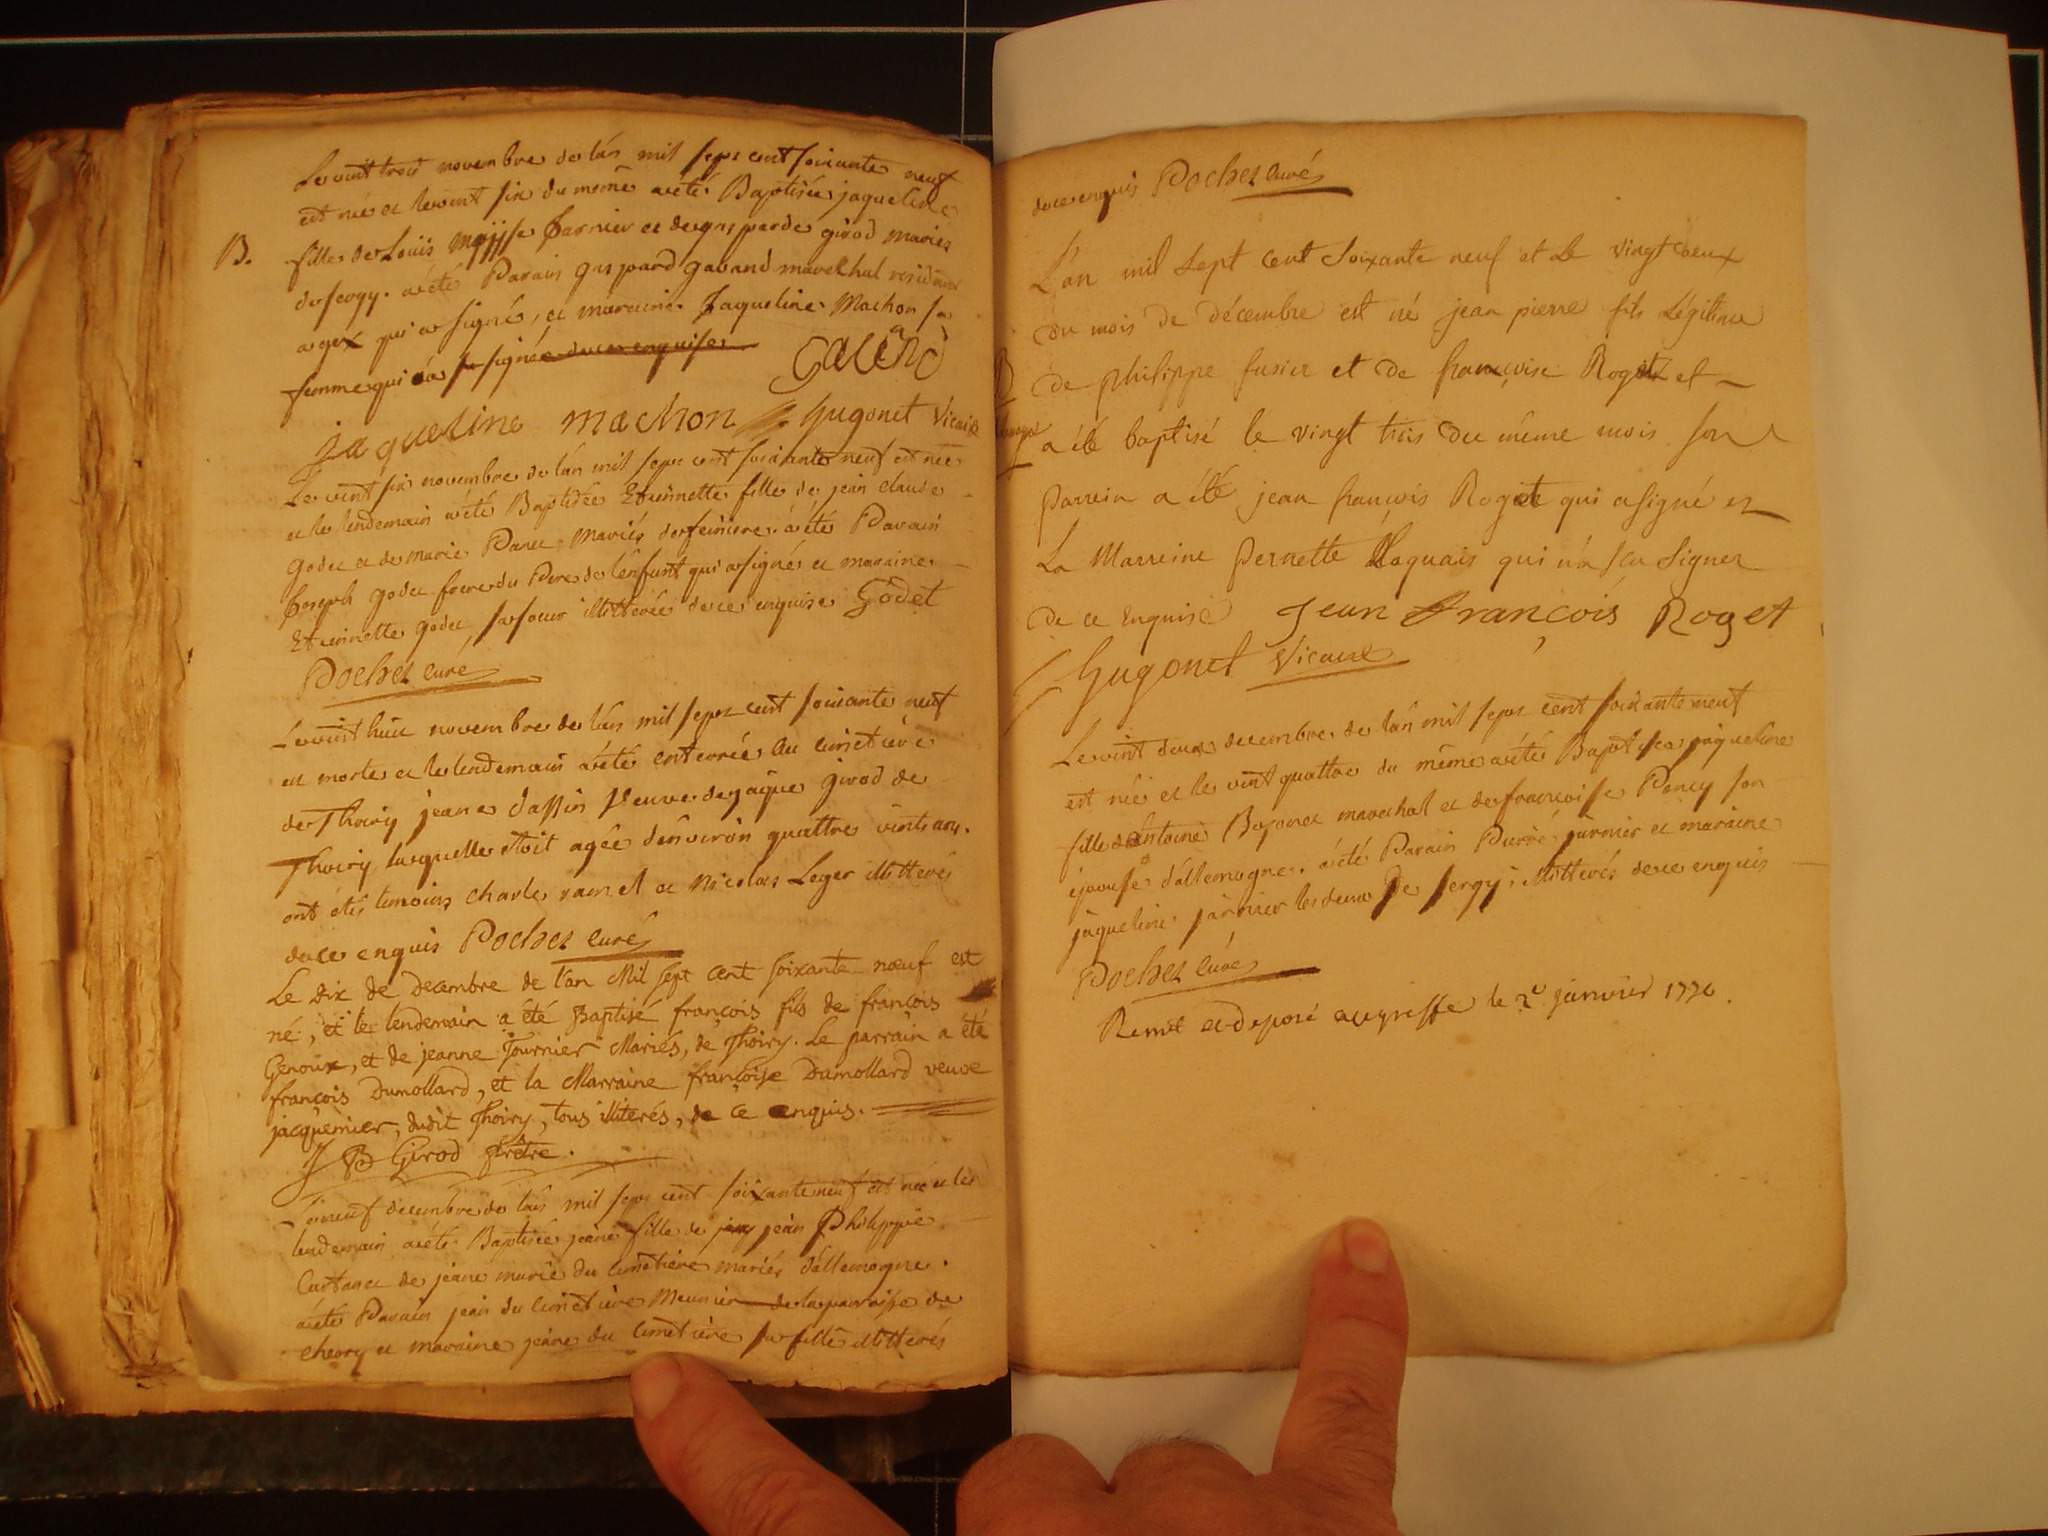 Le vint trois novembre de l'an mil sept cent soixante neuf
est née et le vint six du même a été Baptisée jaqueline
B. fille de Louis Farnier et de gasparde girod mariés
de sergy. a été Parain gaspard gavand marechal residant
a gex qui a signé, et maraine Jaqueline Machon sa
femme qui a signée de ce enquise
Gavand
jaqueline machon Hugonet Vicaire
Le vint six novembre de l'an mil sept cent soixante neuf est née
et le lendemain a été Baptisée Etiennette fille de jean claude
godet et de marie Mariés de feniere. a été Parain
Joseph godet frere du Pere de l'enfant qui a signé et maraine
Etiennette godet sa soeur illitterée de ce enquise Godet
Pochet Curé
Le vint huit novembre de l'an mil sept cent soixante neuf
est morte et le lendemain a été enterrée au cimetière
de Thoiry jeane dassin veuve de jaque girod de
Thoiry laquelle étoit agée d'environ quattre vints ans.
ont étés temoins charle ramel et Nicolas Leger illitterés
de ce enquis Pochet Curé
Le dix de decembre de l'an Mil sept cent soixante nœuf est
né, et le lendemain a été Baptisé françois fils de françois
Genoux, et de jeanne Tournier Mariés, de Thoiry. Le parrain a été
françois Dumollard, et la Marraine françoise Dumollard veuve
jacquemier, dudit Thoiry, tous illiterés, de ce enquis.
J B Girod prêtre.
neuf decembre de l'an mil sept cent soixante neuf est née et le
lendemain a été Baptisée jeane fille de jean Philippe
et de jeane marie du cimetière mariés d'allemogne.
a été Parain jean du cimetière Meunier de la parroisse de
cheory et maraine jeane du cimetière sa fille illitterés
de ce enquis Pochet Curé
L'an mil sept cent soixante neuf et le vingt deux
du mois de décembre est né jean pierre fils Légitime
de philippe fusier et de françoise Roget et
a été baptisé le vingt trois du même mois son
parrein a été jean françois Roget qui a signé et
La Marreine pernette Laquais qui n'a sçu signer
de ce Enquise Jean François Roget
Hugonet Vicaire
Le vint deux decembre de l'an mil sept cent soixante neuf
est née et le vint quattre du même a été Baptisée jaqueline
fille d'Antoine marechal et de françoise Pency son
epouse d'allemogne. a été Parain Pierre jarnier et maraine
jaqueline jarnier les deux De sergy illitterés de ce enquis
Pochet Curé
Remit et deposé au greffe le 2e janvier 1770.